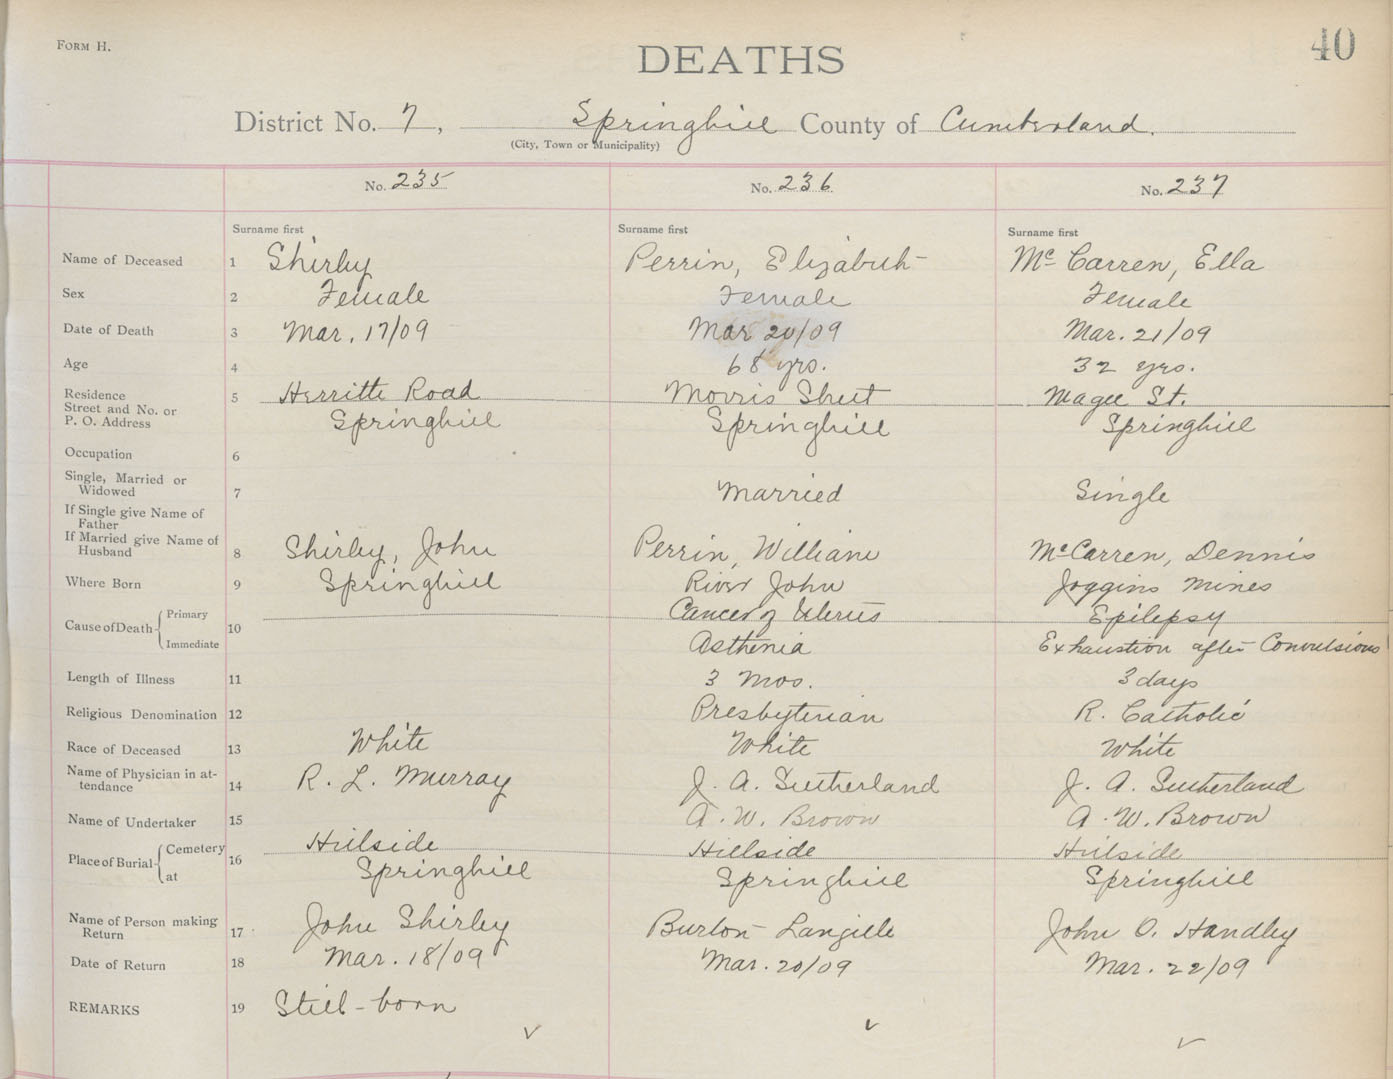 FORM H.
DEATHS
40
District No. 7, Springhill County of Cumberland.
(City, Town or Municipality)
No. 235 No. 236 No. 237
Surname first Surname first Surname first
Name of Deceased 1 Shirley Perrin, Elizabeth Mc Carren, Ella
Sex 2 Female Female Female
Date of Death 3 Mar. 17/09 Mar 20/09 Mar. 21/09
Age 4 68 yrs. 32 yrs.
Residence 5 Herritte Road Morris Street Magee St.
Street and No. or
P. O. Address Springhill Springhill Springhill
Occupation 6
Single, Married or
Widowed 7 Married Single
If Single give Name of
Father
If Married give Name of
Husband 8 Shirley, John Perrin, William McCarren, Dennis
Where Born 9 Springhill River John Joggins Mines
Cause of Death 10 Primary Cancer of Uterus Epilepsy
Immediate Asthenia Exhaustion after Convulsions
Length of Illness 11 3 Mos. 3 days
Religious Denomination 12 Presbyterian R. Catholic
Race of Deceased 13 White White White
Name of Physician in at-
tendance 14 R. L. Murray J. A. Sutherland J. A. Sutherland
Name of Undertaker 15 A. W. Brown A. W. Brown
Place of Burial 16 Cemetery Hillside Hillside Hillside
at Springhill Springhill Springhill
Name of Person making
Return 17 John Shirley Burton Langille John O. Handley
Date of Return 18 Mar. 18/09 Mar. 20/09 Mar. 22/09
REMARKS 19 Still-born